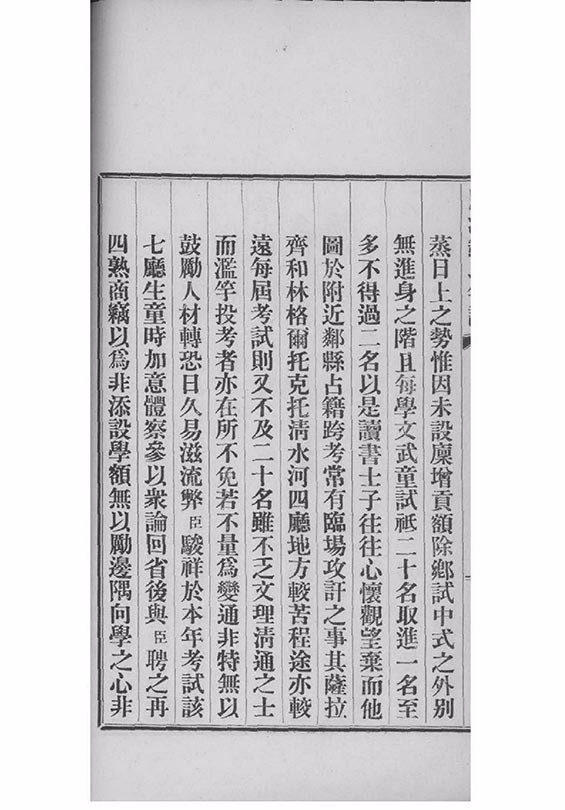 蒸日上之勢惟因未設廩增貢額除鄉試中式之外別
無進身之階且每學文武童試祗二十名取進一名至
多不得過二名以是讀書士子往往心懷觀望棄而他
圖於附近鄰縣占籍跨考常有臨場攻訐之事其薩拉
齊和林格爾托克托清水河四廳地方較苦程途亦較
遠每屆考試則又不及二十名雖不乏文理清通之士
而濫竽投考者亦在所不免若不量爲變通非特無以
鼓勵人材轉恐日久易滋流弊臣駿祥於本年考試該
七廳生童時加意體察參以衆論回省後與臣聘之再
四熟商竊以爲非添設學額無以勵邊隅向學之心非